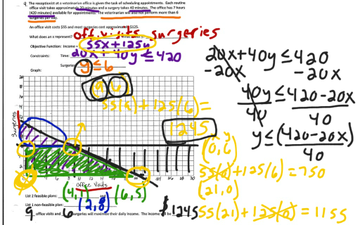 9. The receptionist at a veterinarian office is given the task of scheduling appointments. Each routine
office visit takes approximately 20 minutes and a surgery takes 40 minutes. The office has 7 hours
(420 minutes) available for appointments. The veterinarian will not perform more than 6
surgeries per day.
An office visit costs $55 and most surgeries cost $125.
office visits surgeries
Objective Function: Income = 55x+125y
Constraints: Time 20x+40y≤420
Surgeries y≤6
Graph:
(9,6)
55(9)+125(6)=
1245
Surgeries
Office Visits
List 2 feasible plans: (4,1) (6,5)
List 1 non-feasible plan: (12,8)
9 office visits and 6 surgeries will maximize their daily income. The income will be $1245
20x+40y≤420
-20x -20x
40y ≤ 420-20x
40 40
y≤(420-20x)
40
x y
(0,6)
55(0)+125(6)=750
(21,0)
55(21)+125(0)=1155